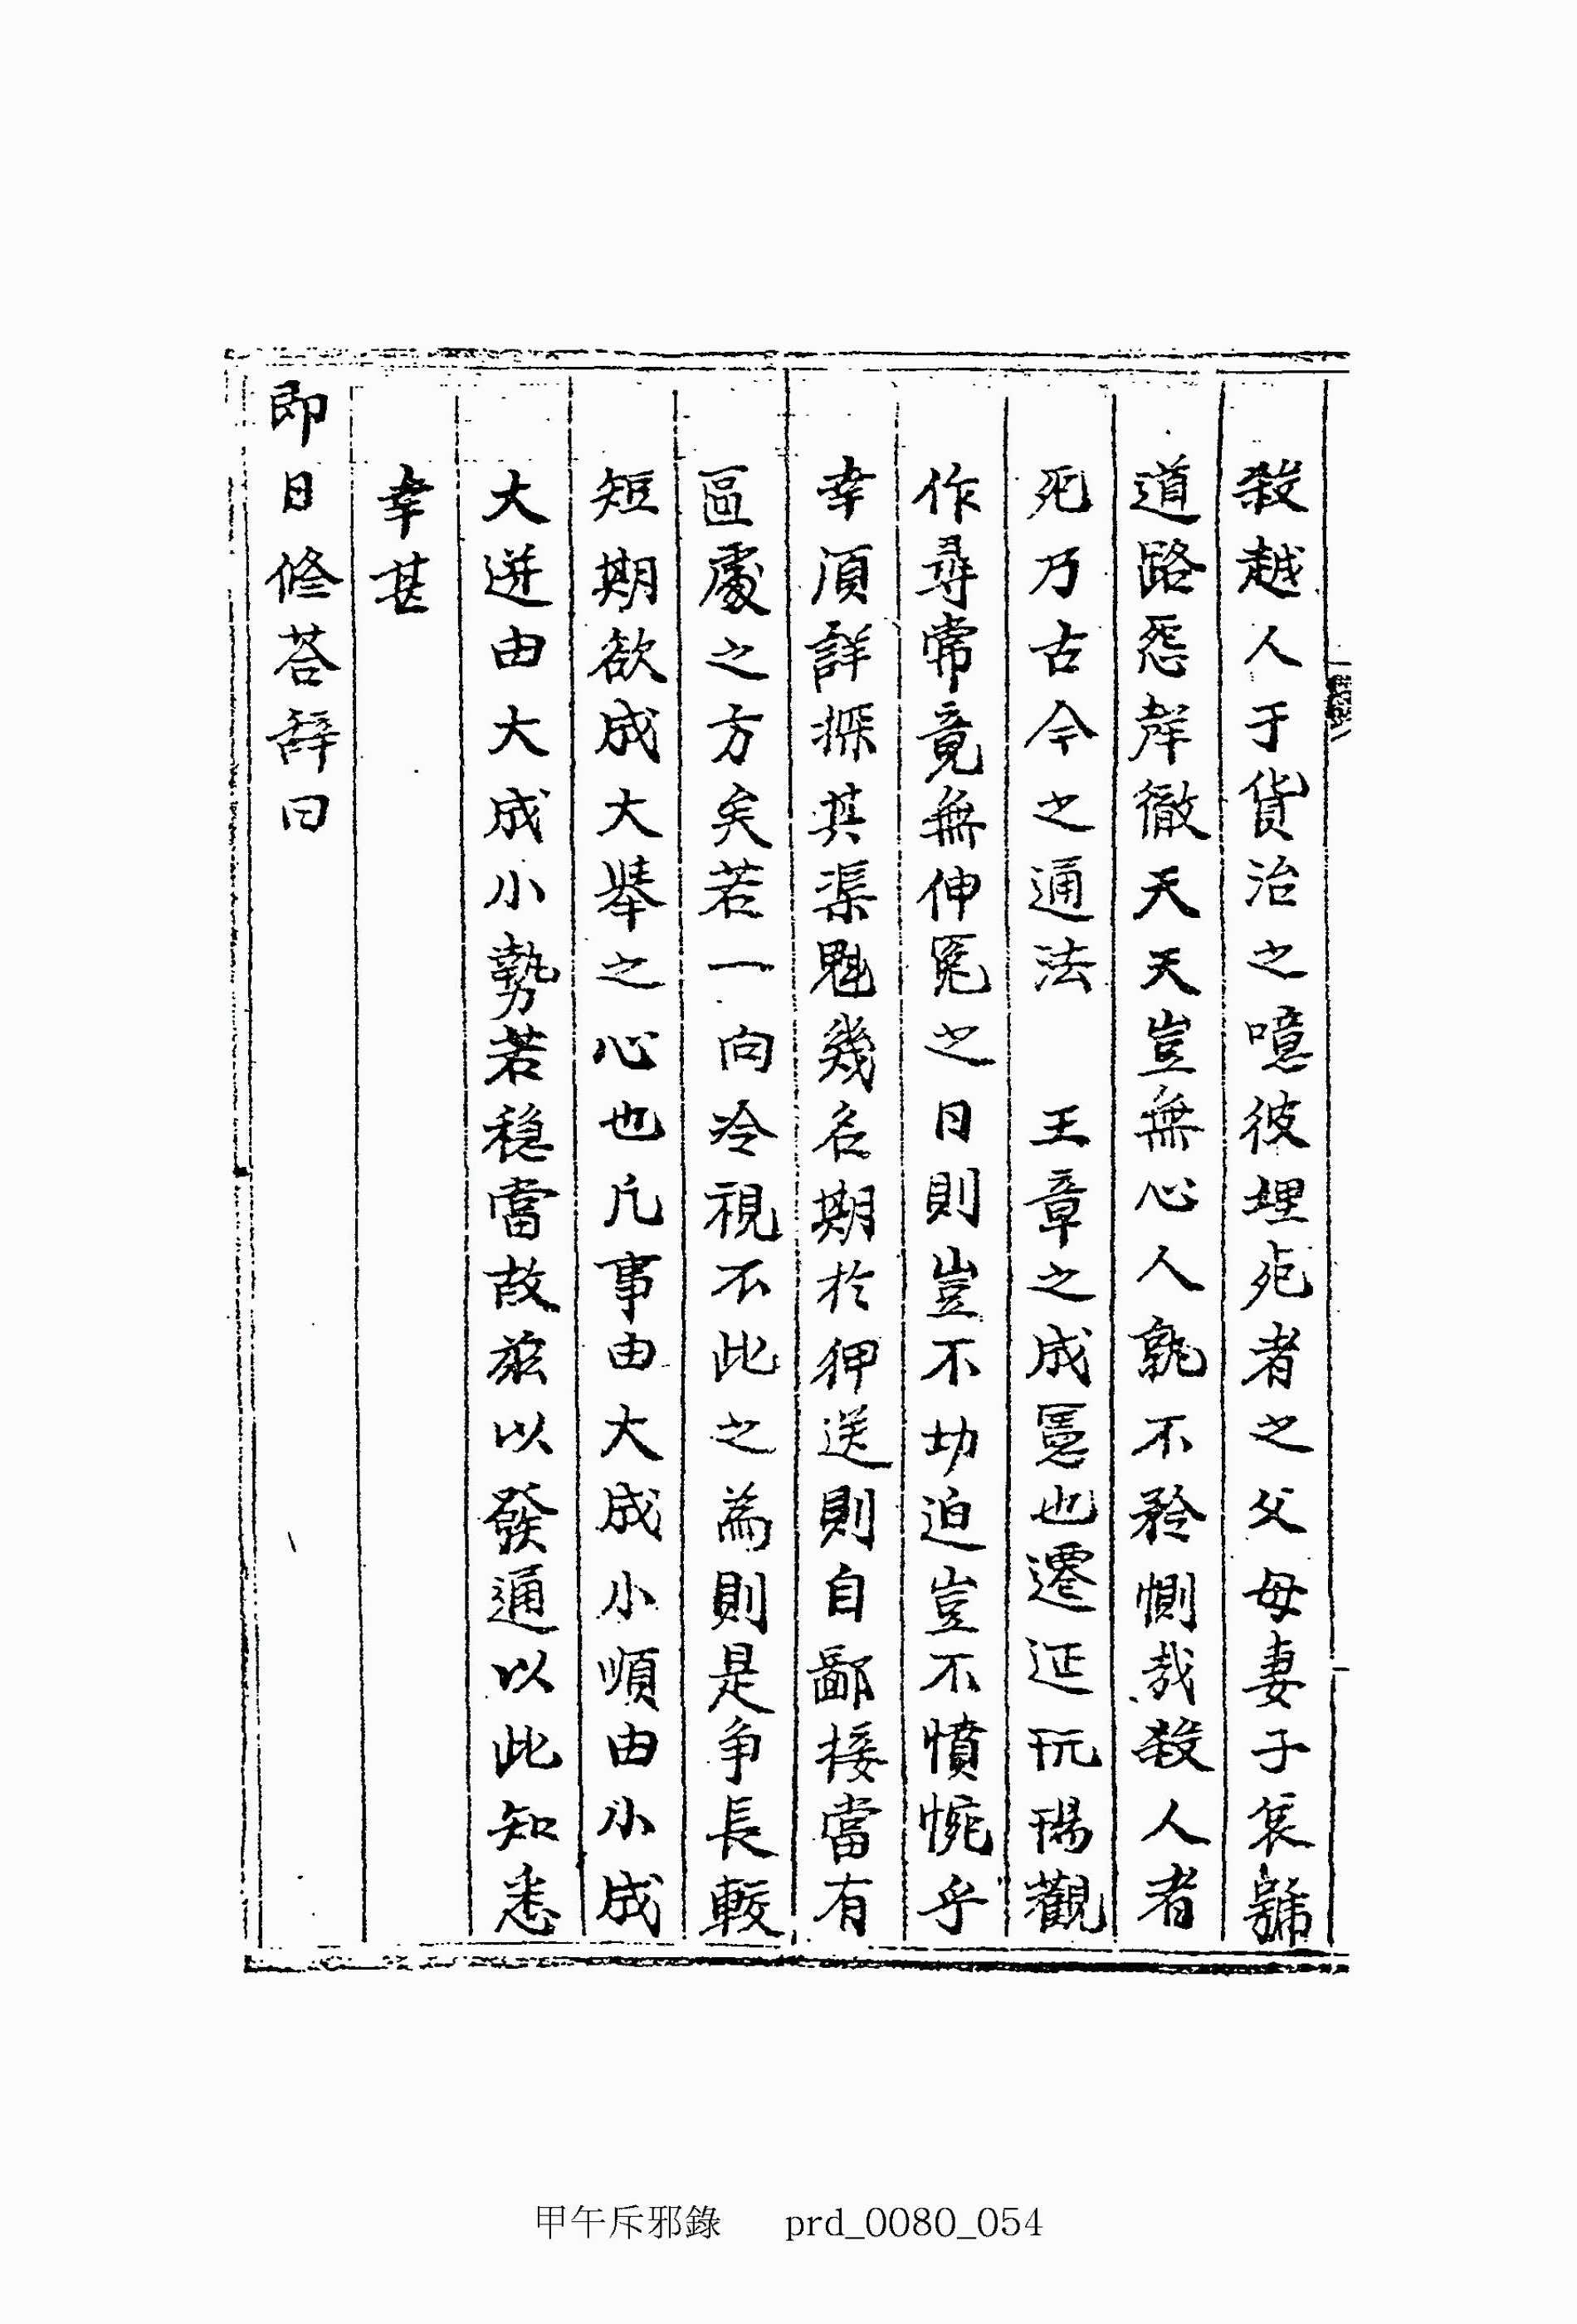 殺越人于貨治之噫彼埋死者之父母妻子哀號
道路怨聲徹天天豈無心人孰不矜惻哉殺人者
死乃古今之通法　王章之成憲也遷延玩愒觀
作尋常竟無伸冤之日則豈不㤼迫豈不憤惋乎
幸須詳探其渠魁幾名期於押送則自鄙接當有
區處之方矣若一向冷視不此之為則是爭長較
短期欲成大擧之心也凡事由大成小順由小成
大逆由大成小勢若穩當故玆以發通以此知悉
幸甚
即日修荅辭曰
甲午斥邪錄 prd_0080_054